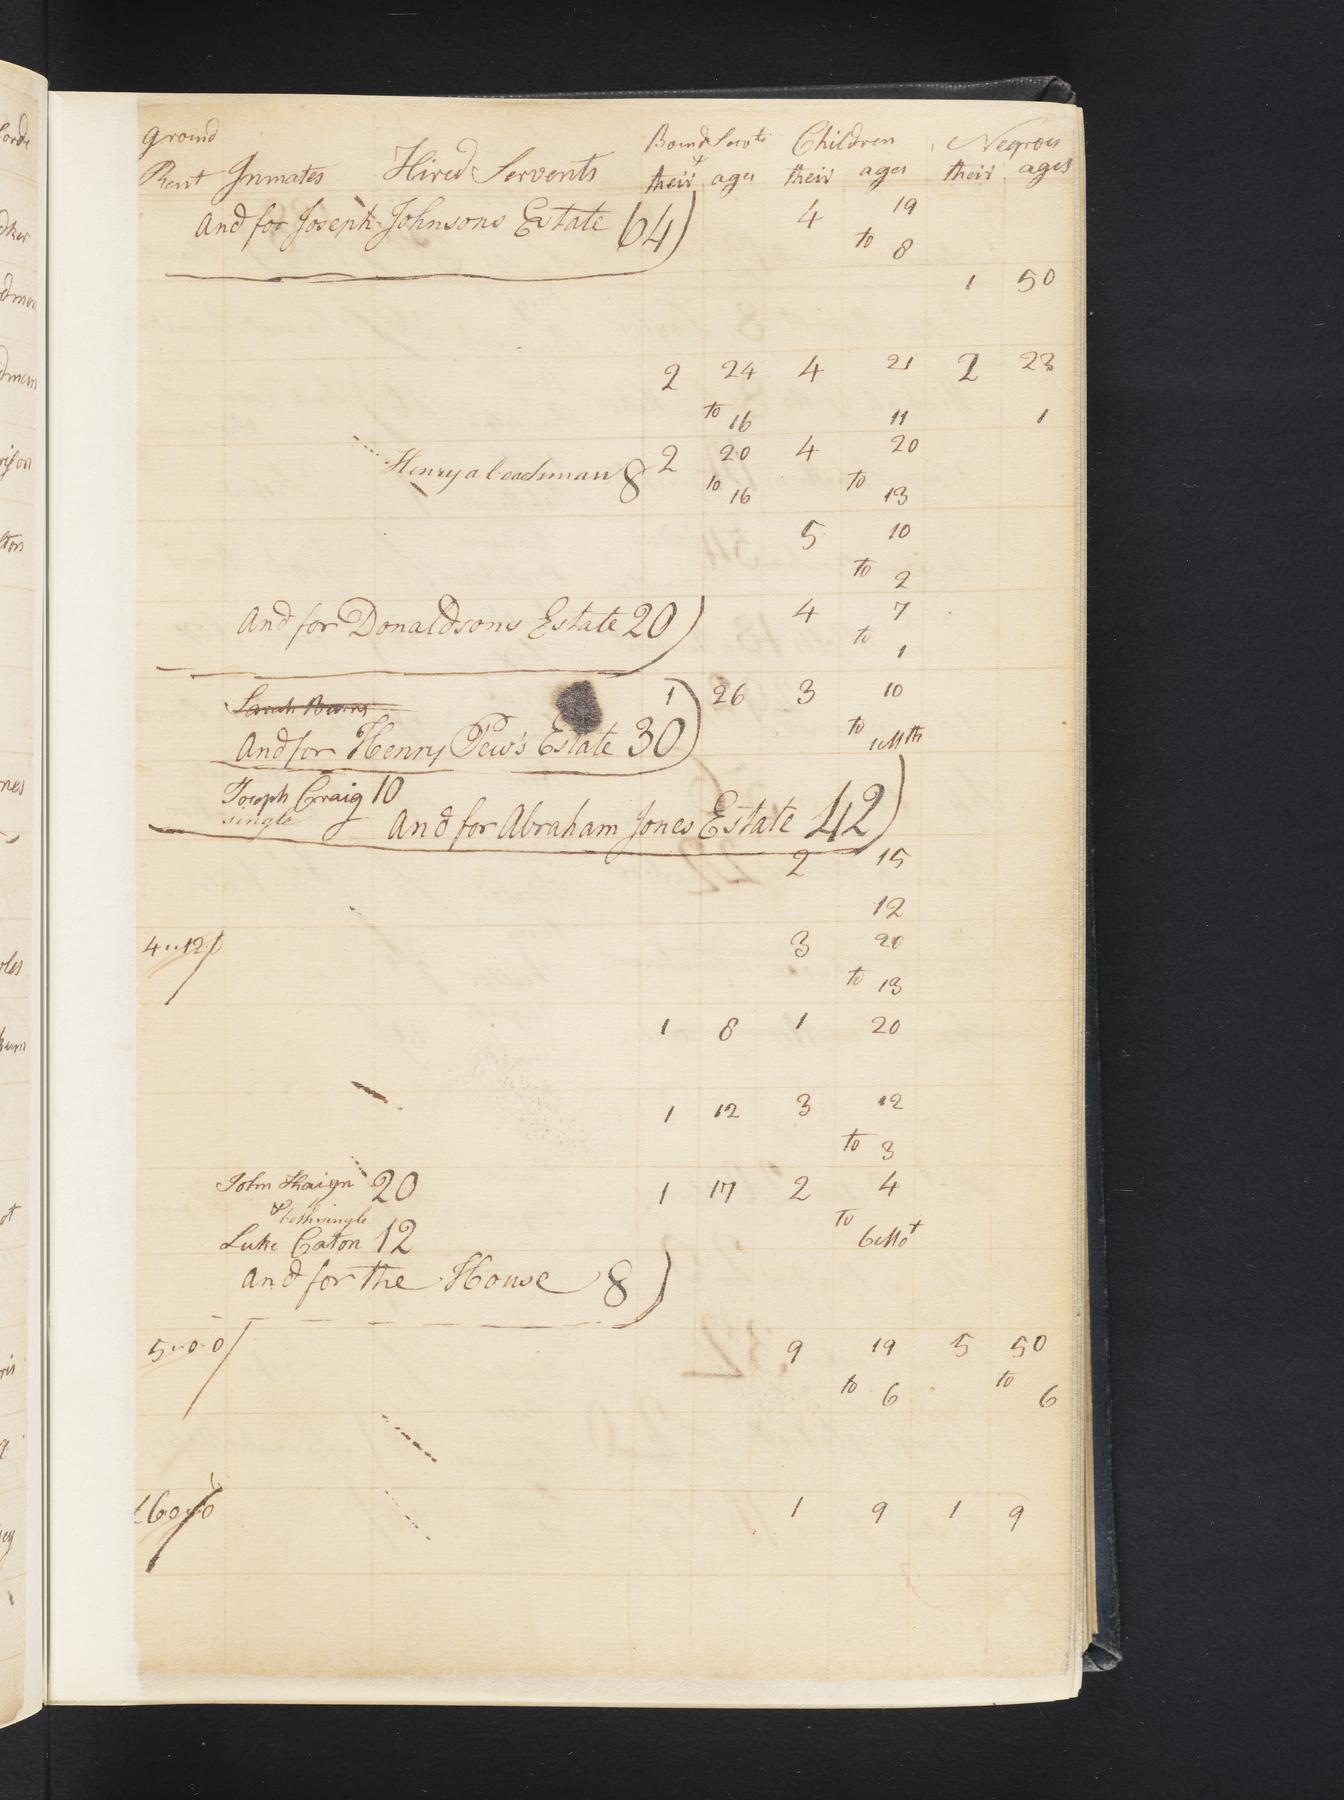 Ground Rent Inmates Hired Servents Bound Servts & their ages Children their ages Negroes their ages
And for Joseph Johnsons Estate 64) 4 19
to 8
1 50
2 24 4 21 2 23
to 16 11 1
Henry a Coachman 8 2 20 4 20
to 16 to 13
5 10
to 2
And for Donaldsons Estate 20) 4 7
to 1
Sarah Burns 1 26 3 10
And for Henry Pew's Estate 30) to
Joseph Craig 10
single And for Abraham Jones Estate 42)
2 15
12
4..12/ 3 20
to 13
1 8 1 20
1 12 3 12
to 3
John 20 1 17 2 4
& both single to 6 Mot
Luke Caton 12
And for the House 8)
5..0..0/ 9 19 5 50
to 6 to 6
£6..0..0 1 9 1 9